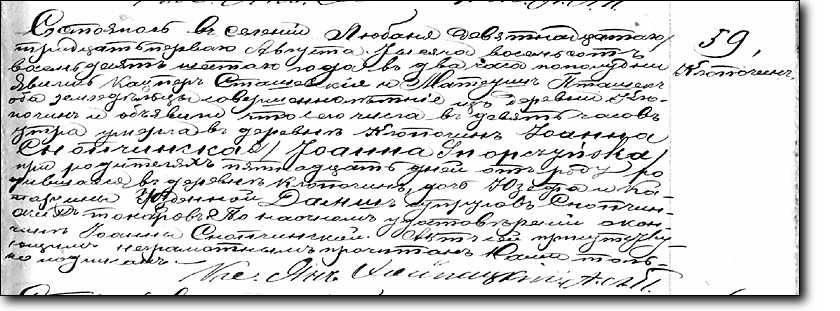 Состоялось въ селеніи Любаня девятнадцатаго/
тридцать перваго Августа тысяча восемьсотъ
восемьдесятъ шестаго года въ два часа пополудни
Явились Кацперъ Сташевскій и Матеушъ Пташекъ
оба земледѣльцы совершеннолѣтніе изъ деревни Клю-
починъ и объявили что сего числа въ девять часовъ
утра умерла въ деревнѣ Ключинъ Іоанна
Скопчинская / Joanna Skopczyńska /
при родителяхъ пятнадцать дней отъ роду ро-
дившаяся въ деревнѣ Ключинъ, дочь Юзефа и Ка-
тарины урожденной супруговъ Скопчин-
скихъ По наочномъ удостовѣреніи о кон-
чинѣ Іоанны Скопчинской. Актъ сей присутству-
ющимъ неграмотнымъ прочитанъ Нами толь-
ко подписанъ.
Кс. Янъ
59,